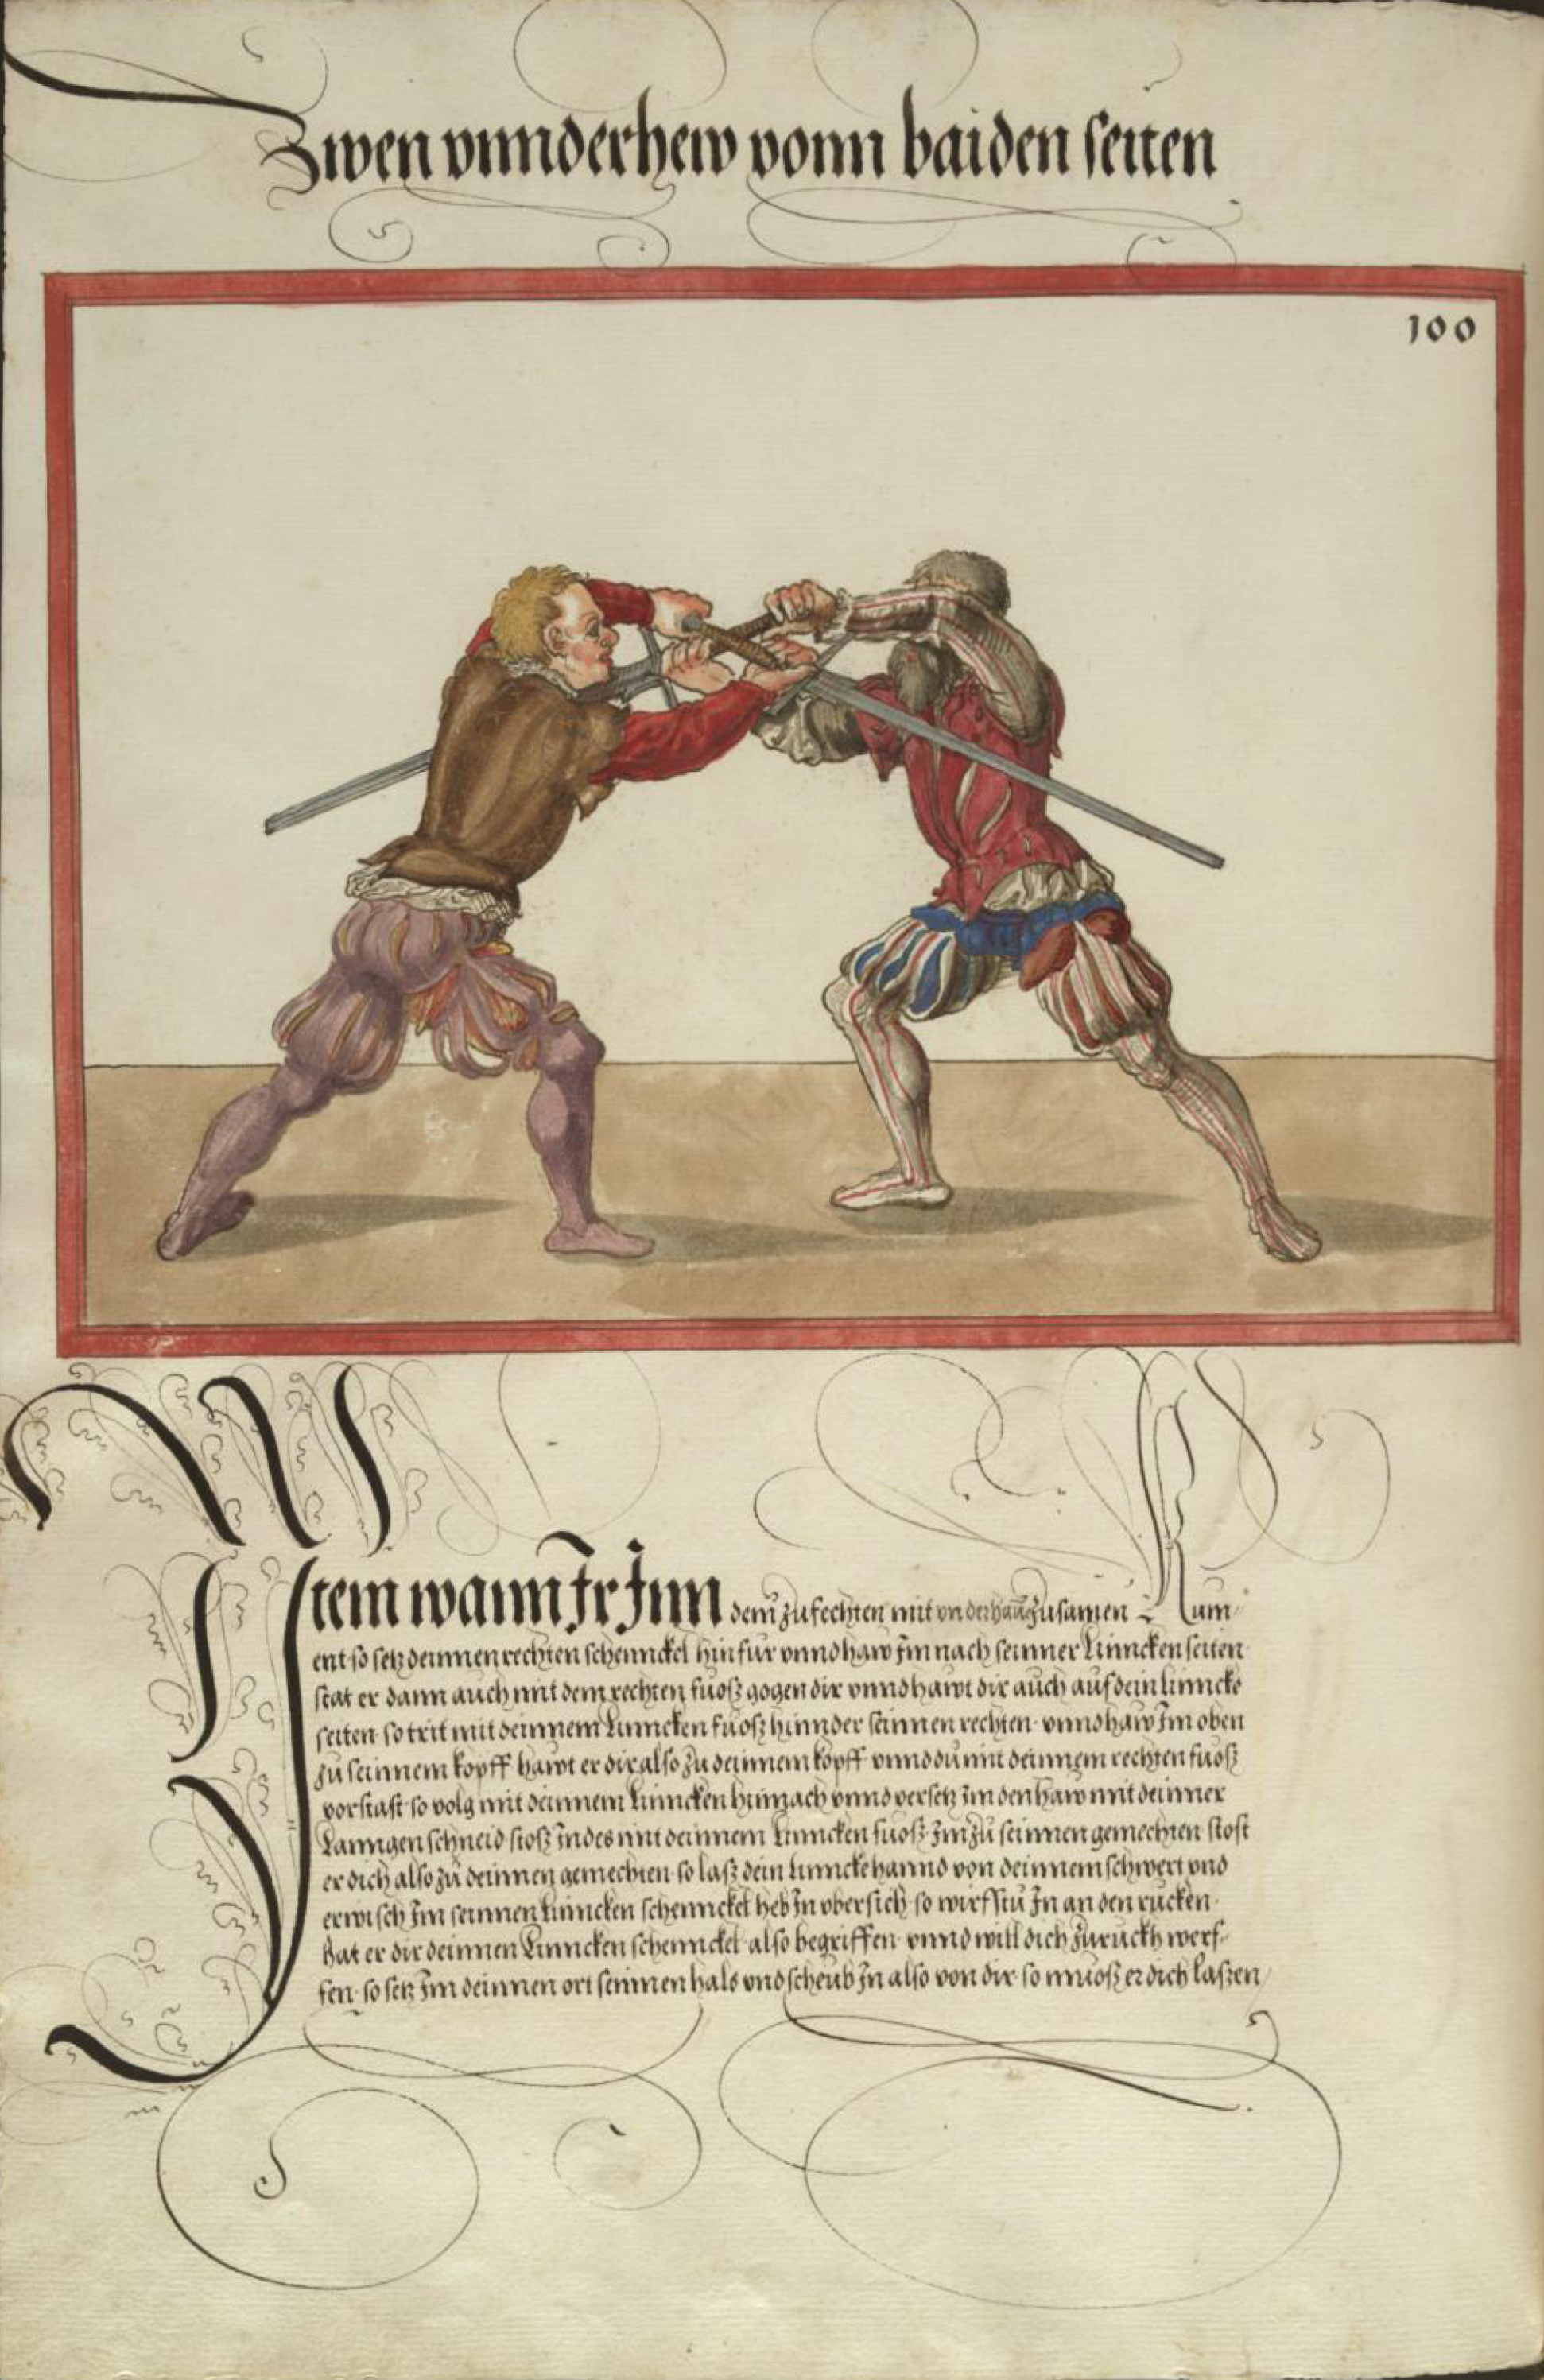 Zwen vnnderhew vonn baiden seiten
100
Item wann Ir Inn dem zufechten mit vnderhaw zusamen Kum¬
ent so setz deinnen rechten schennckel hinfur vnnd haw Im nach seinner Linncken seiten
stat er dann auch mit dem rechten fuosz gogen dir vnnd hawt dir auch auf dein linncke
seiten so trit mit deinnem Linncken fuosz hinnder seinnen rechten vnnd haw Im oben
zu seinnem kopff hawt er dir also zu deinnem kopff vnnd du mit deinnem rechten fuosz
vorstast so volg mit deinnem Linncken hinnach vnnd versetz Im den haw mit deinner
Lanngen schneid stosz Indes mit deinnem Linncken fuosz Im zu seinnen gemechten stost
er dich also zu deinnen gemechten so lasz dein linncke hannd von deinnem schwert vnd
erwisch Im seinnen linncken schennckel heb In vbersich so wirfstu In an den rucken
hat er dir deinnen Linncken schennckel also begriffen vnnd will dich zuruckh werf¬
fen so setz Im deinnen ort seinnen hals vnd scheub In also von dir so muosz er dich laszen